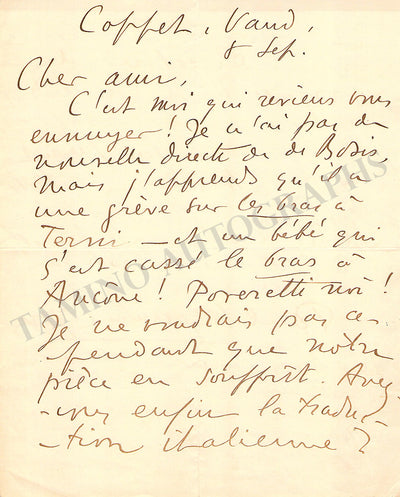 Coppet, Vaud,
8 Sep.
Cher ami,
C'est moi qui reviens vous
ennuyer! Je n'ai pas de
nouvelle directe de de Bosis,
mais j'apprends qu'il a
une grève sur les bras à
Terni — et un bébé qui
s'est cassé le bras à
Ancone! Poveretti noi!
Je ne voudrais pas ce-
pendant que notre
pièce en souffrît. Avez
-vous enfin la traduc-
-tion italienne?
TAMINO AUTOGRAPHS